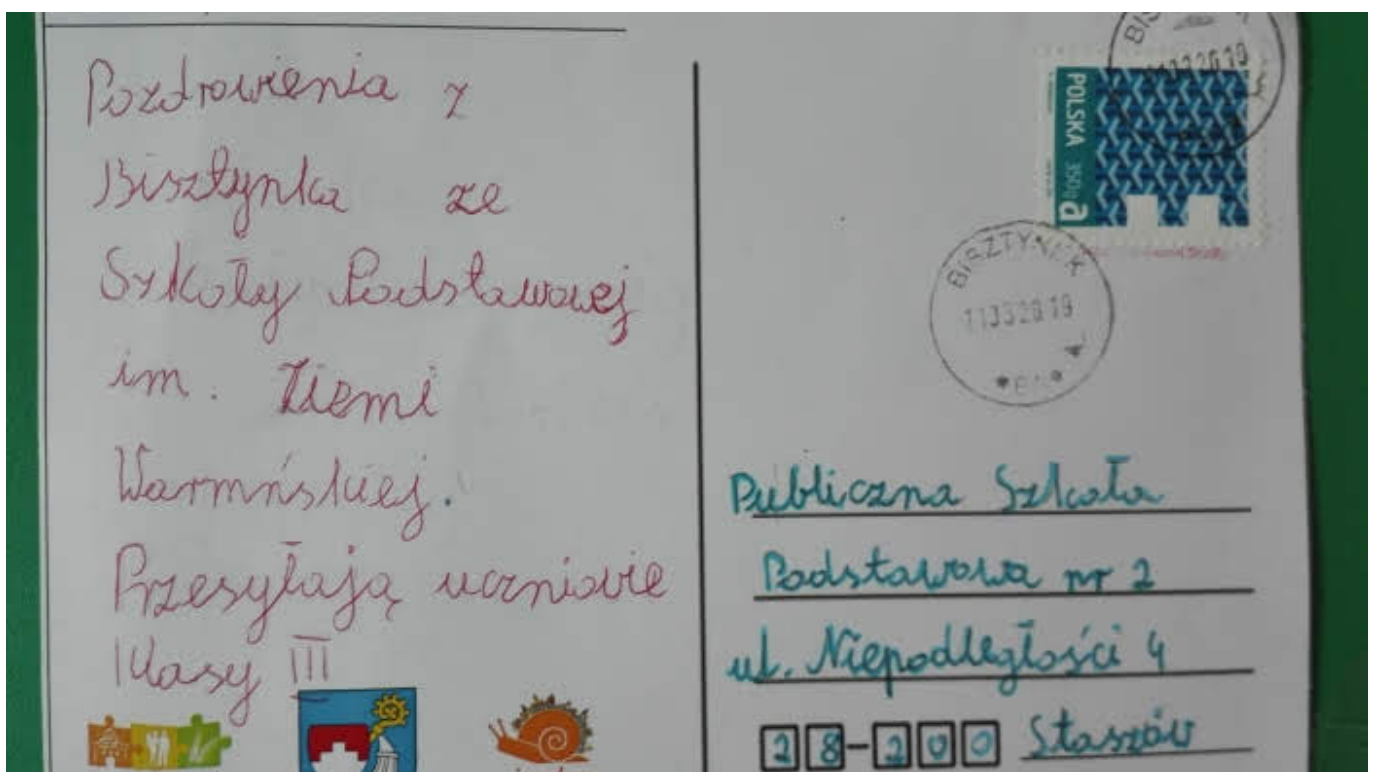 Pozdrowienia z
Bisztynka ze
Szkoły Podstawowej
im. Ziemi
Warmńskiej.
Przesyłają uczniowie
klasy III
POLSKA 350g a
BISZTYNEK
11032019
Publiczna Szkoła
Podstawowa nr 2
ul. Niepodległości 4
28-200 Staszów